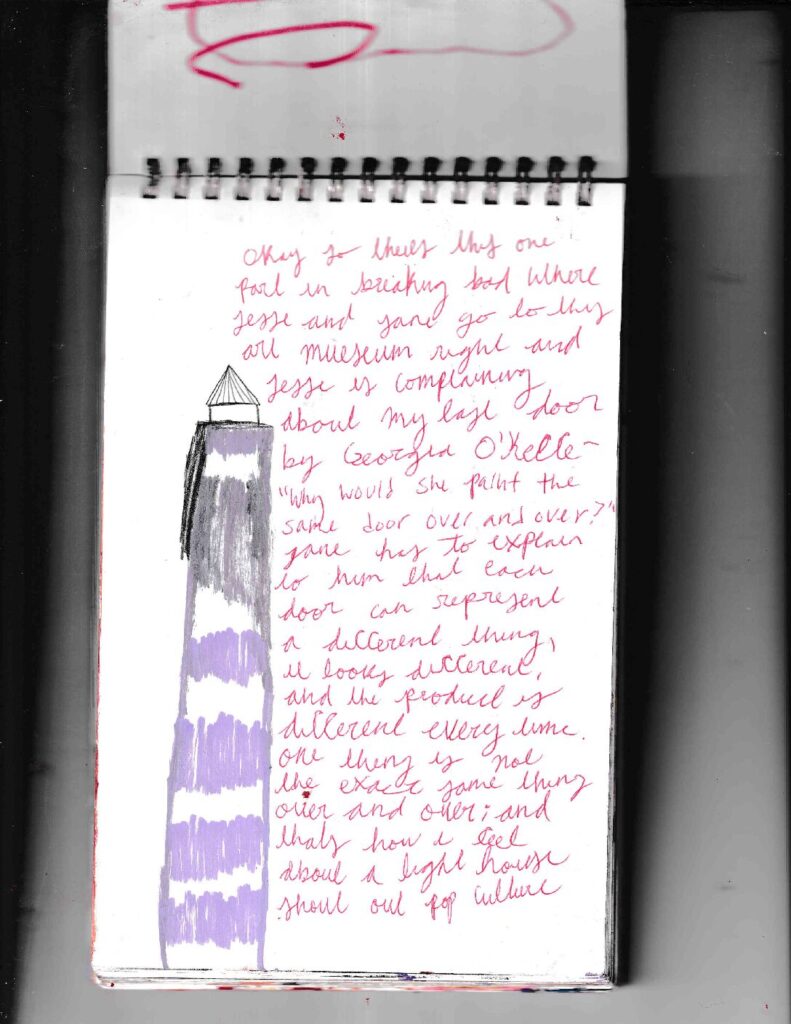 okay so theres this one
part in breaking bad where
jesse and jane go to this
art museum right and
jesse is complaining
about my last door
by Georgia O'Keffe-
"Why would she paint the
same door over and over?"
jane has to explain
to him that each
door can represent
a different thing,
it looks different,
and the product is
different every time.
one thing is not
the exact same thing
over and over; and
thats how i feel
about a light house
shout out pop culture